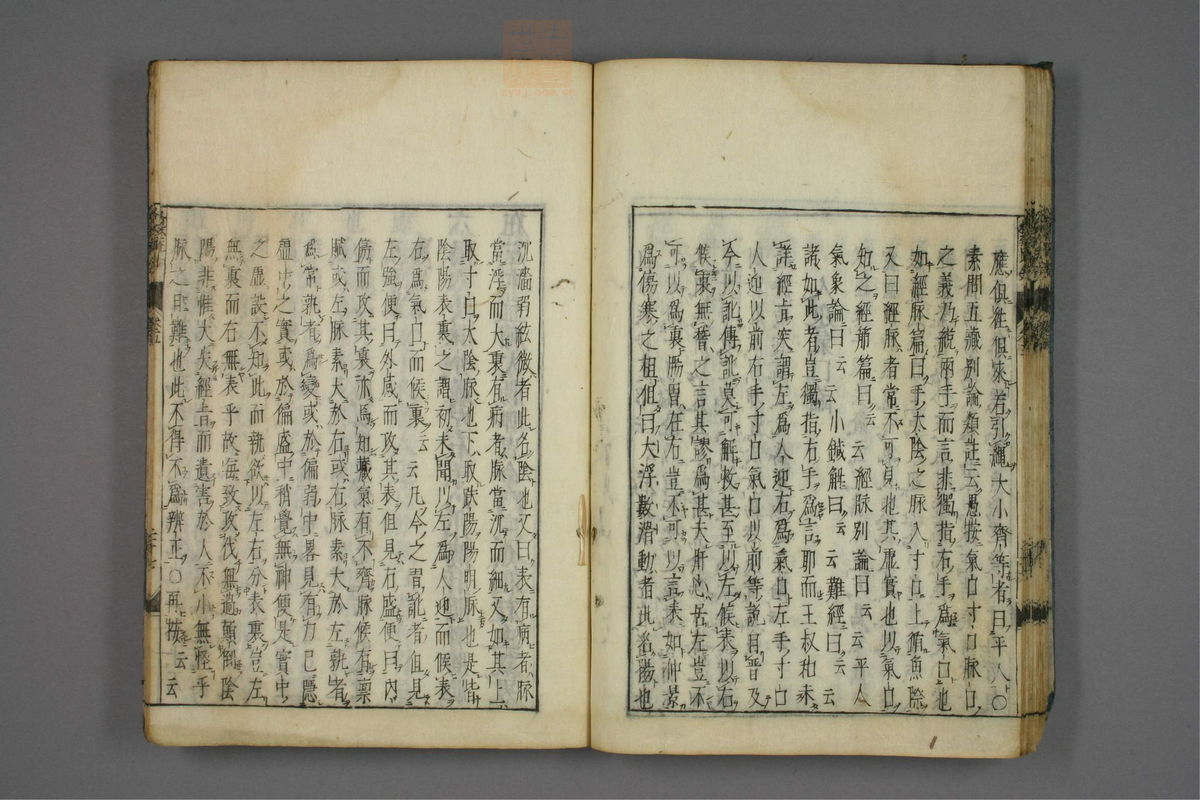 應俱往俱來若引繩大小齊等者曰平人〇
素問五藏别論類註云愚按氣口寸口脉口
之義乃緫兩手而言非獨黃右手爲氣口也
如經脉篇曰手太陰之脉入寸口上循魚際
又曰經脉者常不可見也其虛實也以氣口
知之經筋篇曰云云經脉别論曰云云平人
氣象論曰云云小鍼解曰云云難經曰云云
諸如此者豈獨指右手爲言耶而王叔和未
詳經㫖突謂左爲人迎右爲氣口左手寸口
人迎以前右手寸口氣口以前等説自晉及
今以訛傳訛莫可解救甚至以左候表以右
候裏無稽之言其謬爲甚夫肝心居左豈不
可以爲裏腸胃在右豈不可以言表如仲景
爲傷寒之祖但曰大浮數滑動者此名陽也
沉濇弱弦微者此名陰也又曰表有病者脉
當浮而大裏有病者脉當沉而細又如其上
取寸口太陰脉也下取趺陽陽明脉也是皆
陰陽表裏之謂初未聞以左爲人迎而候表
右爲氣口而候裏云云凡今之習訛者但見
左強便曰外感而攻其表但見右盛便曰内
傷而攻其裏亦焉知藏氣有不齊脉候有稟
賦或左脉素大於右或右脉素大於左孰者
爲常孰者爲變或於偏弱中畧見有力已隱
藴中之實或於偏盛中稍覺無神便是實中
之虛設不知此而執欲以左右分表裏豈左
無裏而右無表乎故每致攻伐無過顛倒陰
陽非惟大失經㫖而遺害於人不小無怪乎
脉之日難也此不得不爲辨正〇再按云云